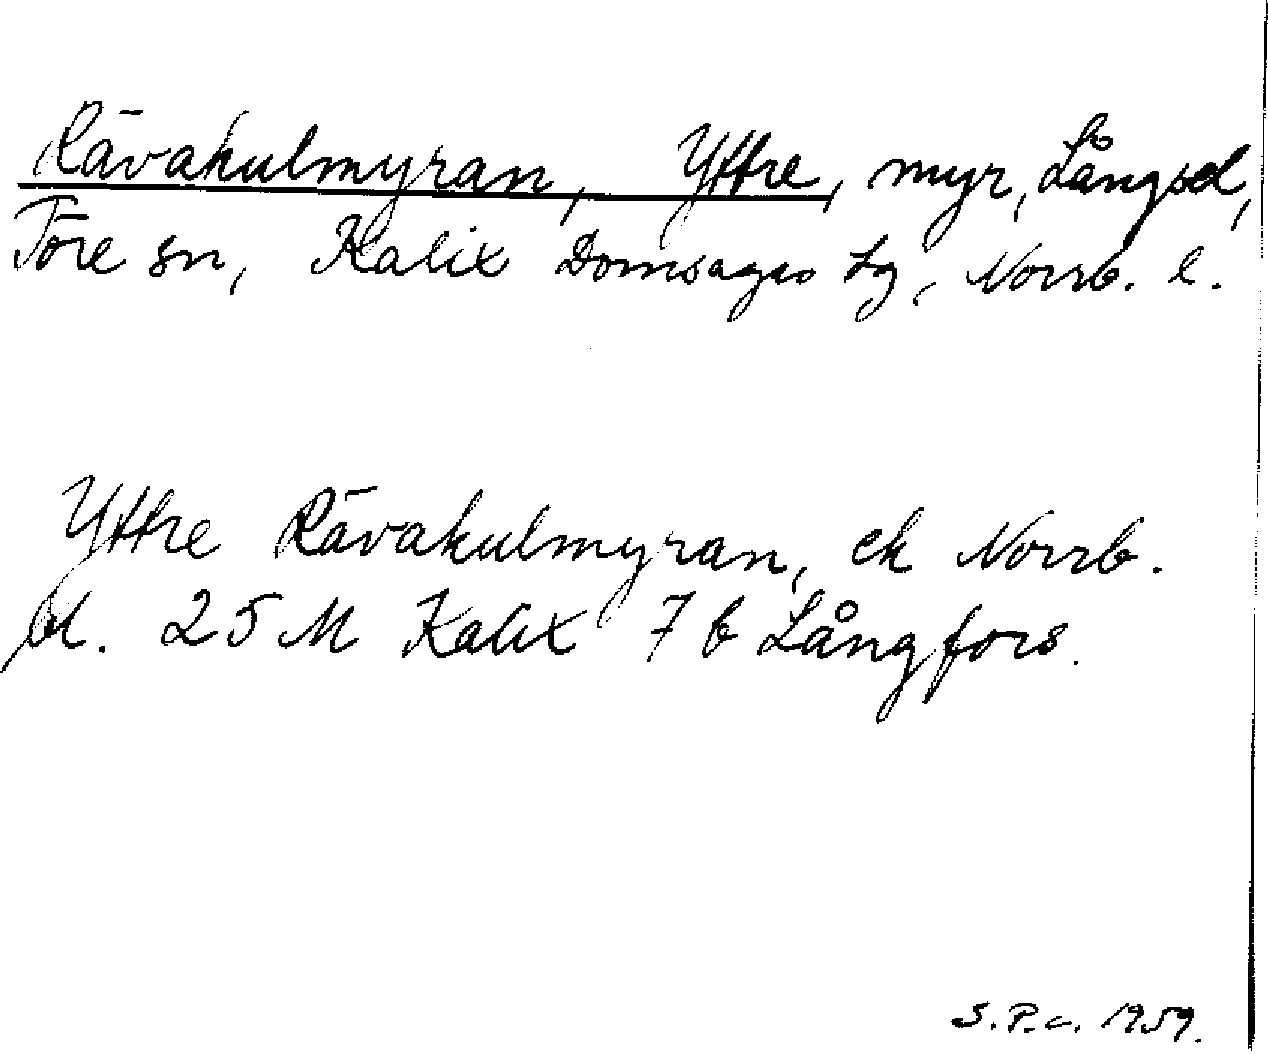 Rävakulmyran, Yttre, myr, Långsel,
Töre sn, Kalix Domsagas tg, Norrb. l.
Yttre Rävakulmyran, ek Norrb.
bl. 25 M Kalix 7 b Långfors.
S.P.c. 1959.